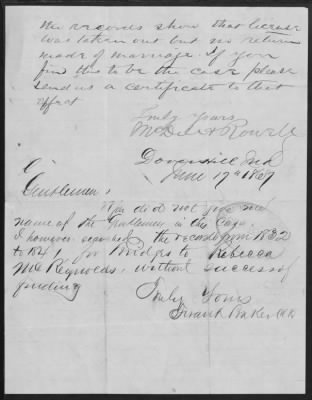 the records show that license
was taken out but no return
made of marriage. If you
find this to be the case please
send us a certificate to that
effect
Truly Yours
Rowell
Ind
June 17th 1869
Gentlemen,
You did not give me
name of the Gentleman in the Case.
I however searched the records from 1832
to 1841 for Bridges to Rebecca
McReynolds, without success of
finding
Truly Yours
Frank Baker